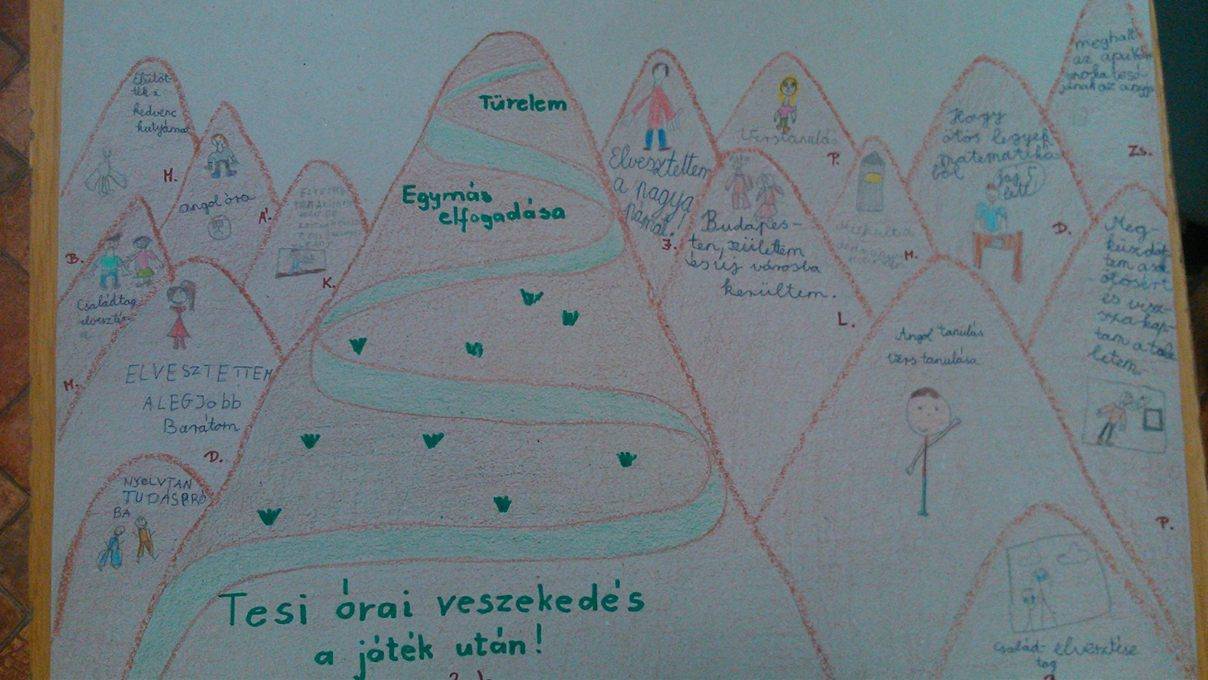 Elütöt-
ték a
kedvenc
kutyámat
M.
angol óra
Á.
K.
B.
Családtag
elvesztése
M.
ELVESZTETTEM
ALEGJobb
Barátom
D.
NYELVTAN
TUDÁSPRÓ
BA
Türelem
Egymás
elfogadása
Tesi órai veszekedés
a játék után!
Elvesztettem
a nagya
pámat!
J.
Verstanulás
P.
Budapes-
ten születtem
és új városba
kerültem.
L.
Meghalt a
M.
Hogy
ötös legyek
matematiká
ból
jog
lett
D.
meghalt
az apukám
unokatesó-
jának az anyja
Zs.
Meg-
küzdöt-
tem az
ötösért
és visz-
sza kap-
tam a tab
letem.
P.
Angol tanulás
vers tanulása
Család- elvesztése
tag